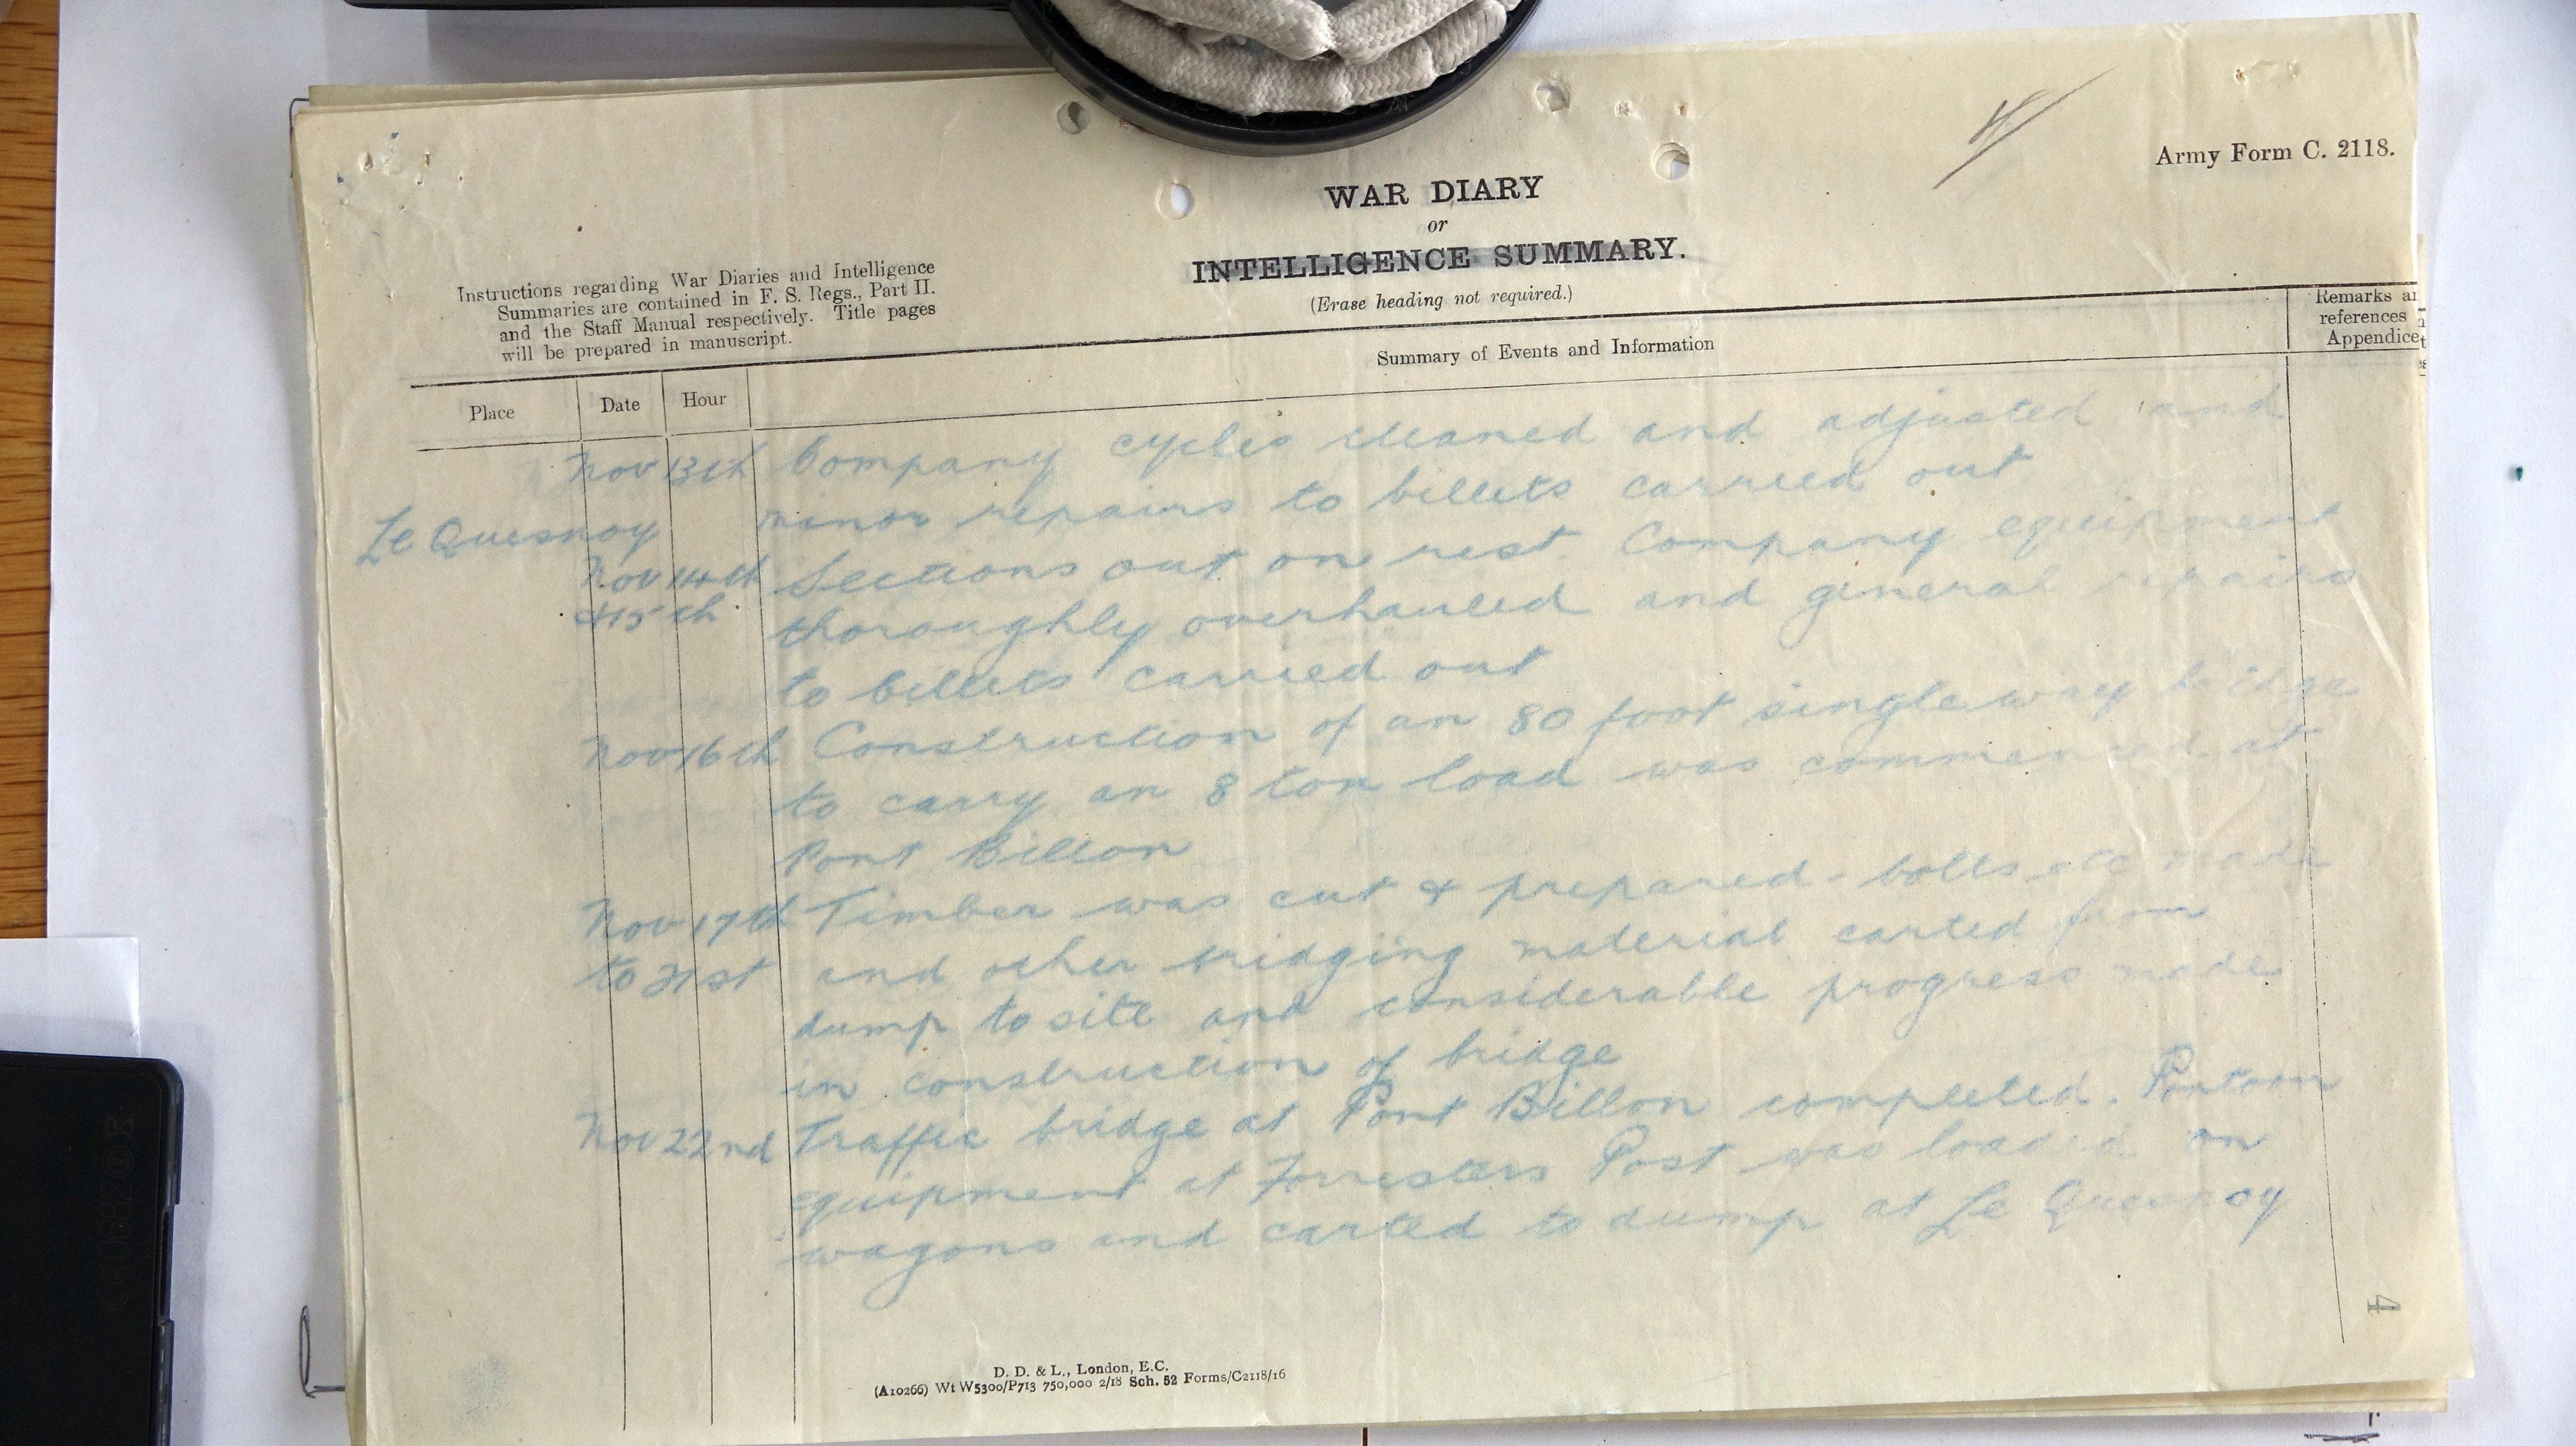 Army Form C. 2118.
WAR DIARY
or
INTELLIGENCE SUMMARY.
(Erase heading not required.)
Instructions regarding War Diaries and Intelligence
Summaries are contained in F. S. Regs., Part II.
and the Staff Manual respectively. Title pages
will be prepared in manuscript.
Remarks a
references
Appendice
Summary of Events and Information
Place Date Hour
Nov 13th Company cycles cleaned and adjusted and
minor repairs to billets carried out
Le Quesnoy
Nov 14th Sections out on rest. Company equipment
&15th thoroughly overhauled and general repairs
to billets carried out
Nov 16th Construction of an 80 foot single way bridge
to carry an 8 ton load was commenced at
Pont Billon
Nov 17th Timber was cut & prepared - bolts etc made
to 21st and other bridging material carted from
dump to site and considerable progress made
in construction of bridge
Nov 22nd Traffic bridge at Pont Billon completed. Pontoon
equipment at Forresters Post was loaded on
wagons and carted to dump at Le Quesnoy
4
D. D. & L., London, E.C.
(A10266) Wt W5300/P713 750,000 2/18 Sch. 52 Forms/C2118/16